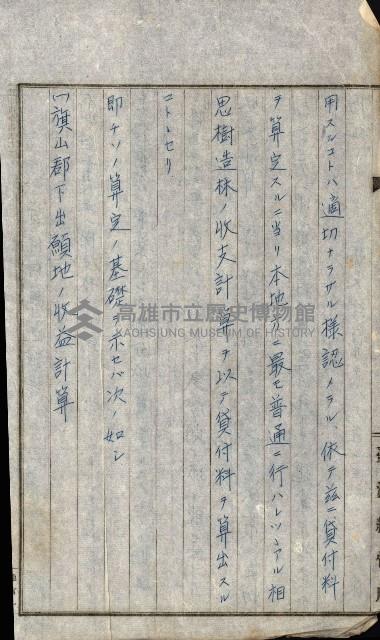 用スルコトハ適切ナラザル様認メラル依テ茲ニ貸付料
ヲ算定スルニ当リ本地方ニ最モ普通ニ行ハレツヽアル相
思樹造林ノ収支計算ヲ以テ貸付料ヲ算出スル
コトヽセリ
即チソノ算定ノ基礎ヲ示セバ次ノ如シ
(一)旗山郡下出願地ノ收益計算
高雄市立歷史博物館
KAOHSIUNG MUSEUM OF HISTORY